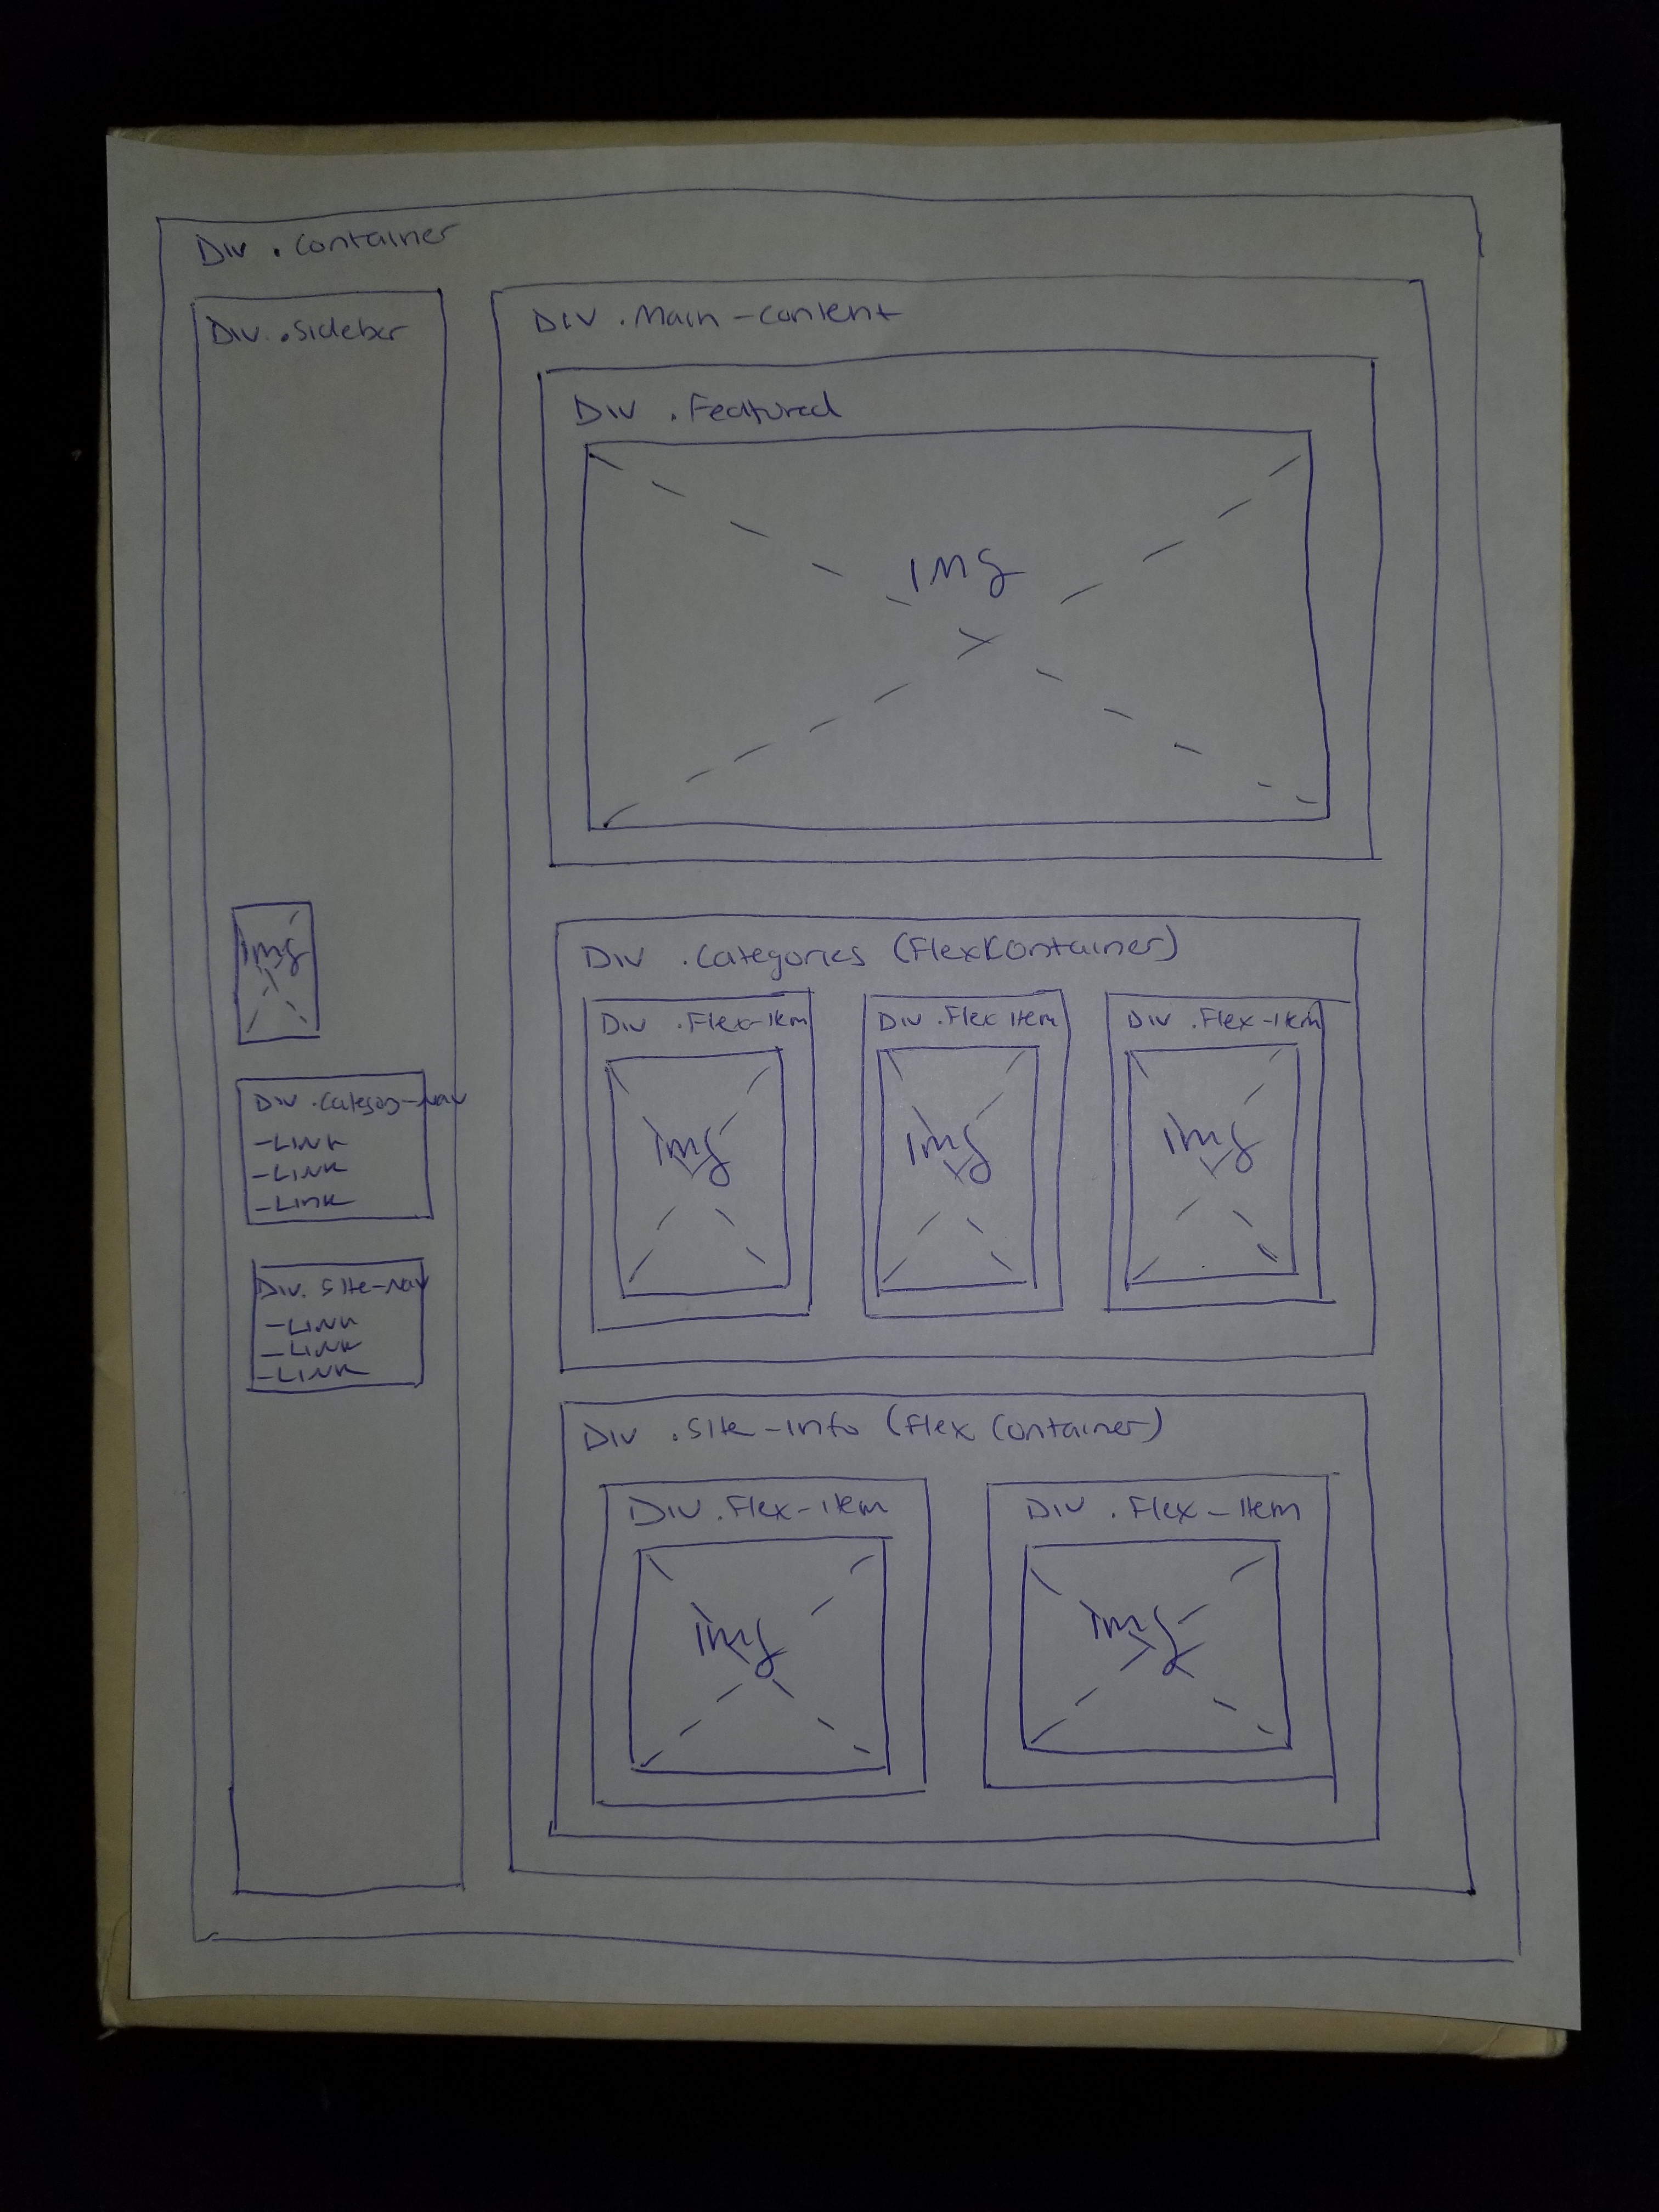 Div .Container
Div .Sidebar
img
Div .Category-nav
-LINK
-LINK
-LINK
Div. Site-nav
-LINK
-LINK
-LINK
Div .Main-content
Div .Featured
img
Div .Categories (FlexContainer)
Div .Flex-Item
img
Div .Flex Item
img
Div .Flex-Item
img
Div .Site-info (Flex Container)
Div .Flex-item
img
Div .Flex-Item
img